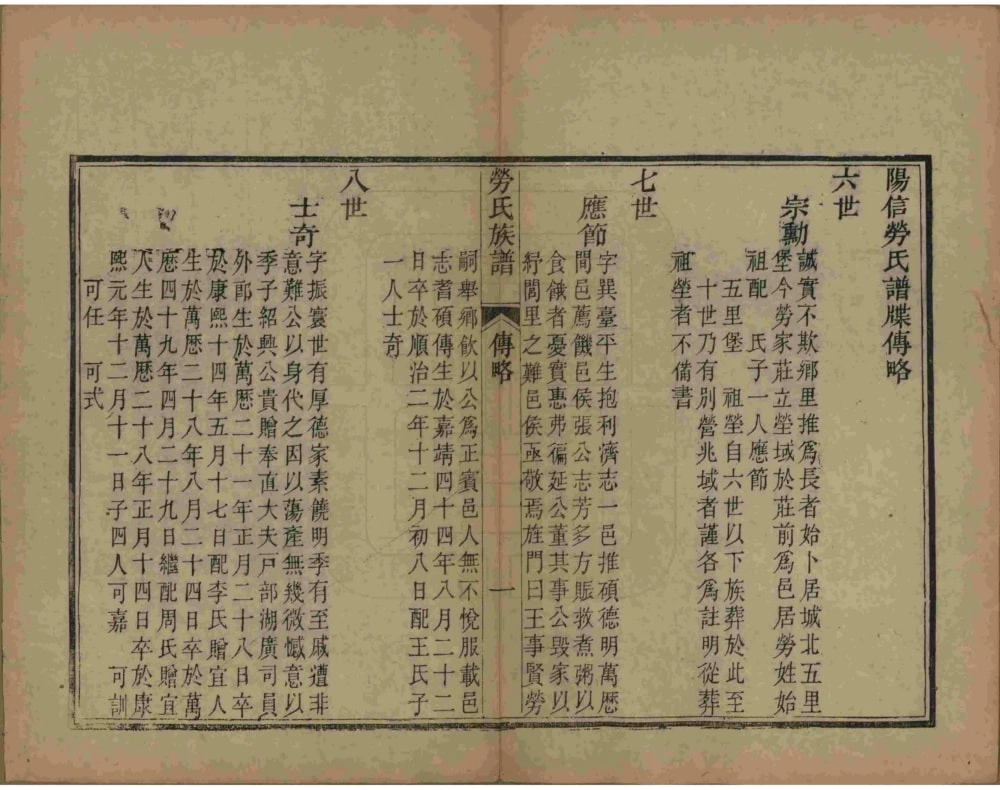 陽信勞氏譜牒傳略
六世
宗勳
誠實不欺鄉里推爲長者始卜居城北五里
堡今勞家莊立塋域於莊前爲邑居勞姓始
祖配　氏子一人應節
五里堡　祖塋自六世以下族葬於此至
十世乃有別營兆域者謹各爲註明從葬
祖塋者不備書
七世
應節
字巽臺平生抱利濟志一邑推碩德明萬歷
間邑薦饑邑侯張公志芳多方賑救煮粥以
食餓者憂實惠弗徧延公董其事公毀家以
紓閭里之難邑侯亟敬焉旌門曰王事賢勞
勞氏族譜　傳略　一
嗣舉鄉飲以公爲正賓邑人無不悅服載邑
志耆碩傳生於嘉靖四十四年八月二十二
日卒於順治二年十二月初八日配王氏子
一人士奇
八世
士奇
字振寰世有厚德家素饒明季有至戚遭非
意難公以身代之因以蕩產無幾微憾意以
季子紹興公貴贈奉直大夫戸部湖廣司員
外郎生於萬歷二十一年正月二十八日卒
於康熙十四年五月十七日配李氏贈宜人
生於萬歷二十八年八月二十四日卒於萬
歷四十九年四月二十九日繼配周氏贈宜
人生於萬歷二十八年正月十四日卒於康
熙元年十二月十一日子四人可嘉　可訓
可任　可式